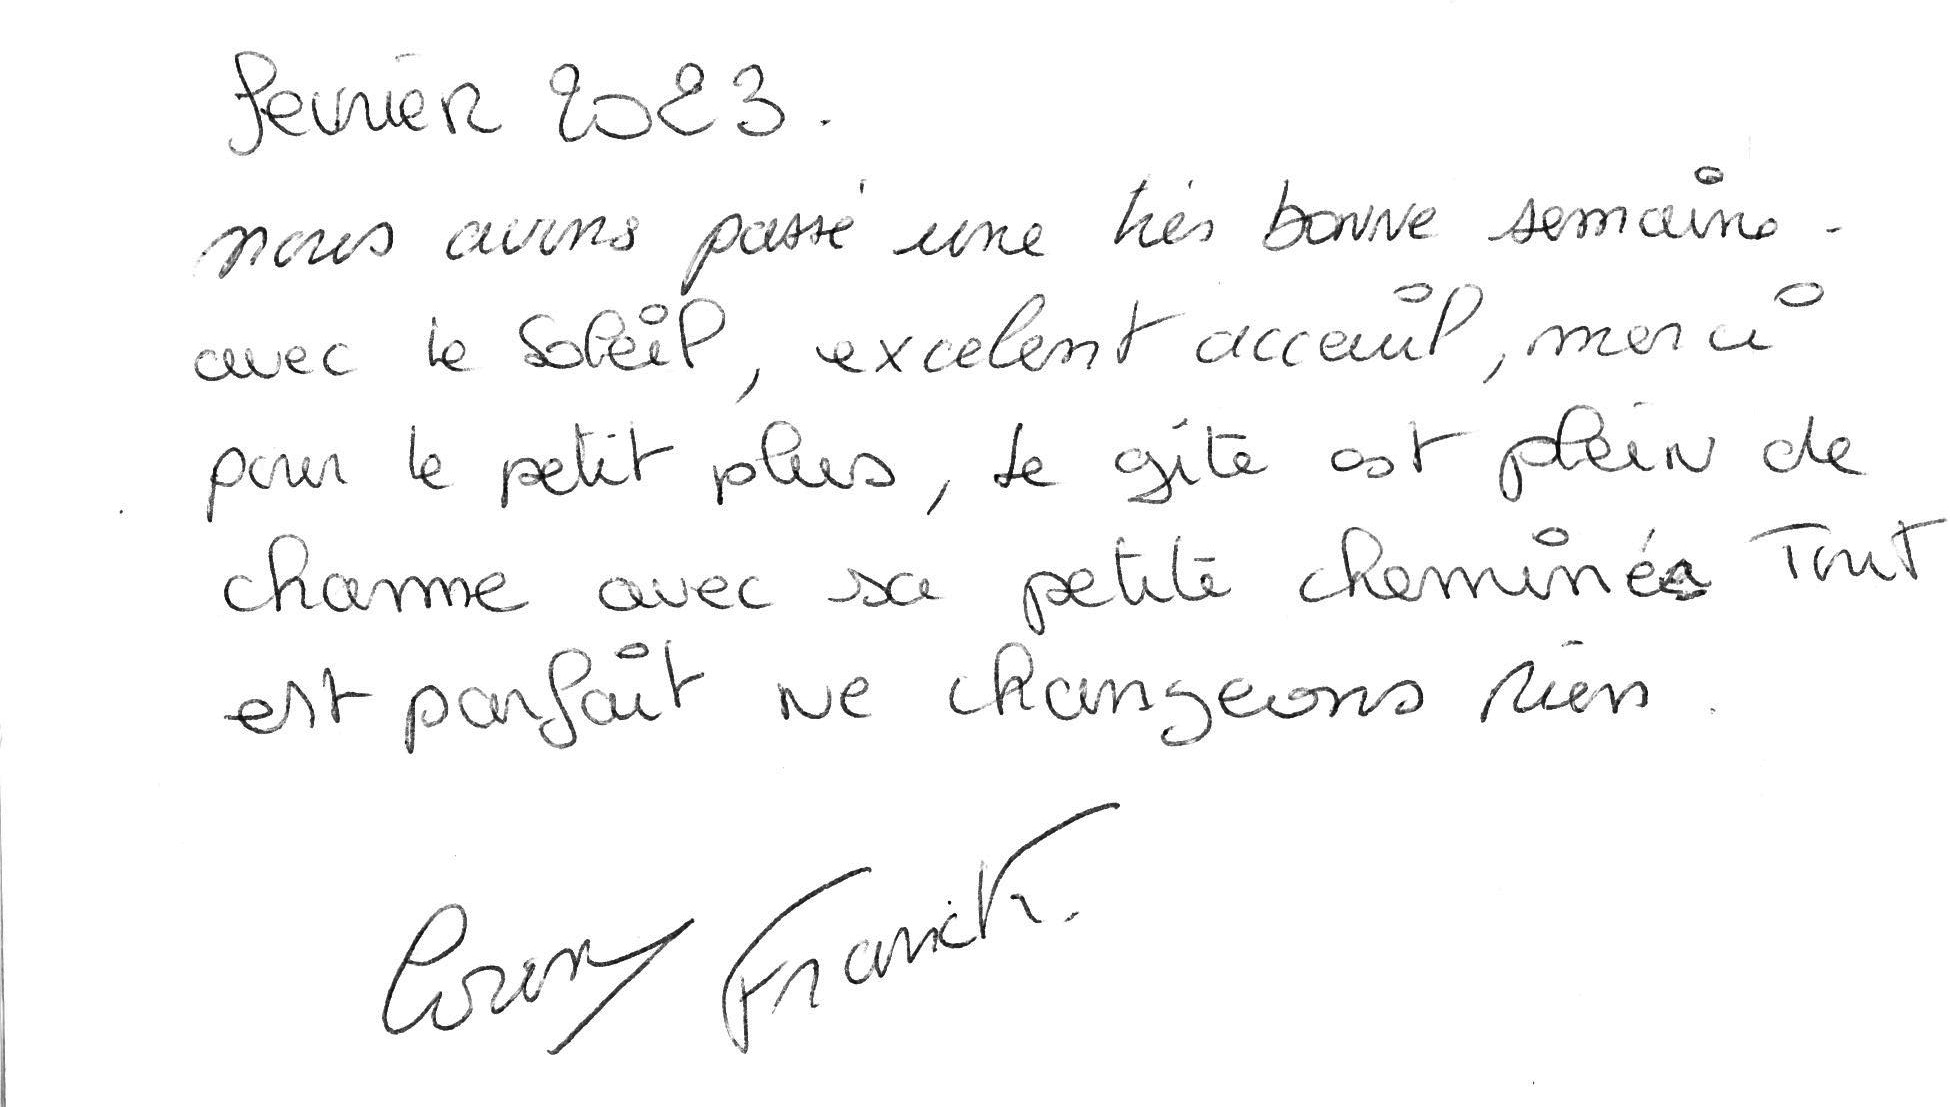 fevrier 2023.
nous avons passé une très bonne semaine.
avec le Soleil, excelent acceuil, merci
pour le petit plus, le gîte est plein de
charme avec sa petite cheminée Tout
est parfait ne changeons rien.
Franck.